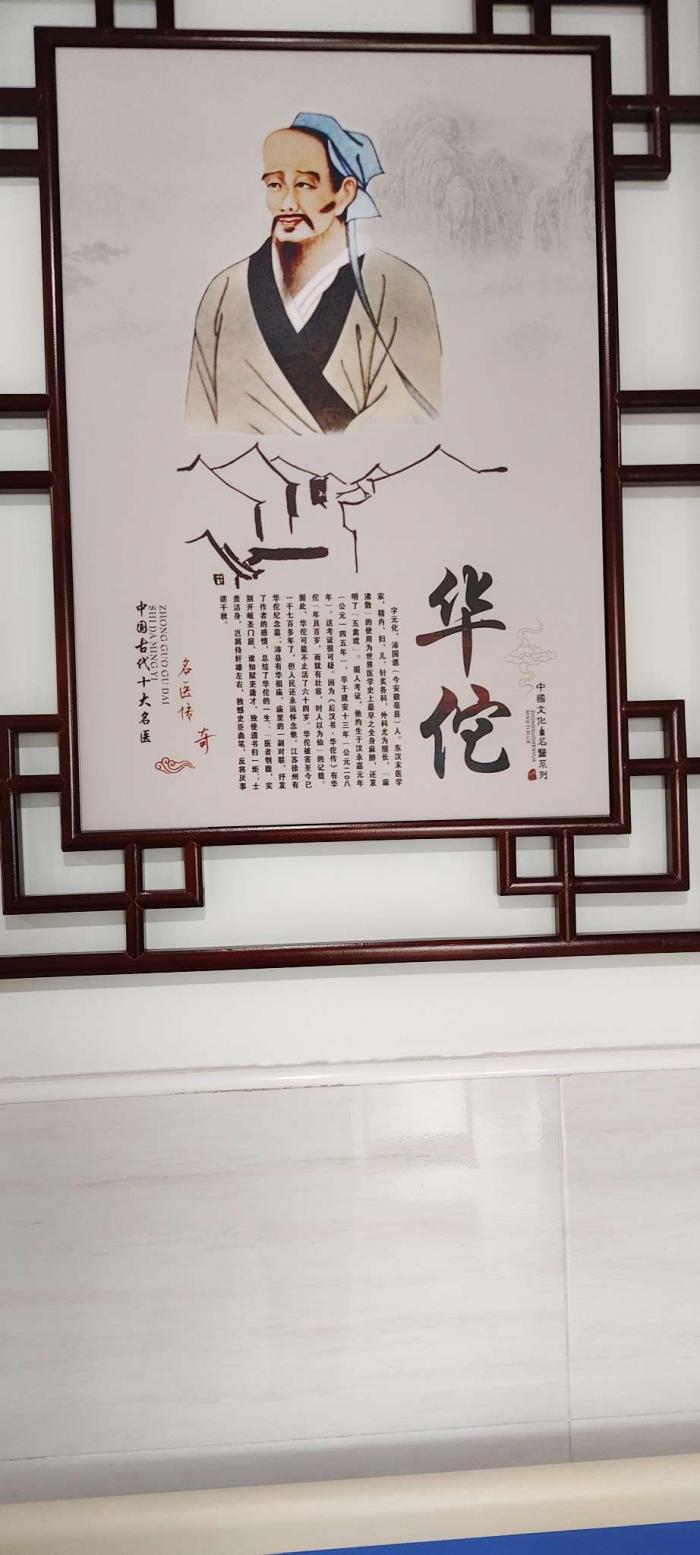 中國文化名醫系列
华佗
字元化，沛国谯（今安徽亳县）人。东汉末医学
家，精内、妇、儿、针灸各科，外科尤为擅长，「麻
沸散」的使用为世界医学史上最早之全身麻醉，还发
明了「五禽戏」。据人考证，他约生于汉永嘉元年
（公元一四五年），卒于建安十三年（公元二〇八
年）。这考证很可疑。因为《后汉书·华佗传》有华
佗「年且百岁，而犹有壮容，时人以为仙」的记载。
据此，华佗可能不止活了六十四岁。华佗被害至今已
一千七百多年了，但人民还永远怀念他。江苏徐州有
华佗纪念墓；沛县有华祖庙，庙里的一副对联，抒发
了作者的感情，总结了华佗的一生：「医者刳腹，实
别开岐圣门庭，谁知狱吏庸才，致使遗书归一炬；士
贵洁身，岂屑侍奸雄左右，独憾史臣曲笔，反将厌事
谤千秋。
名医传奇
ZHONG GUO GU DAI
SHI DA MING YI
中国古代十大名医